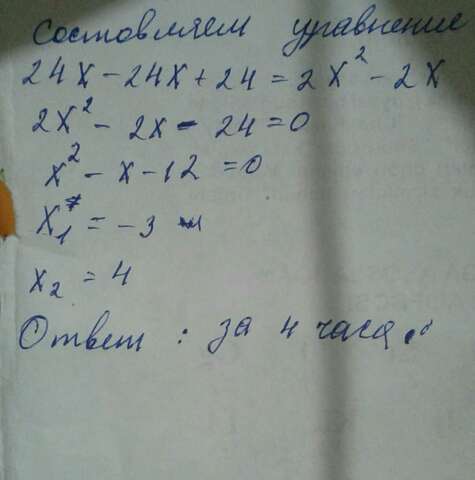 Состовляем уравнение
24x - 24x + 24 = 2x² - 2x
2x² - 2x - 24 = 0
x² - x - 12 = 0
x₁ = -3
x₂ = 4
Ответ : за 4 часа.